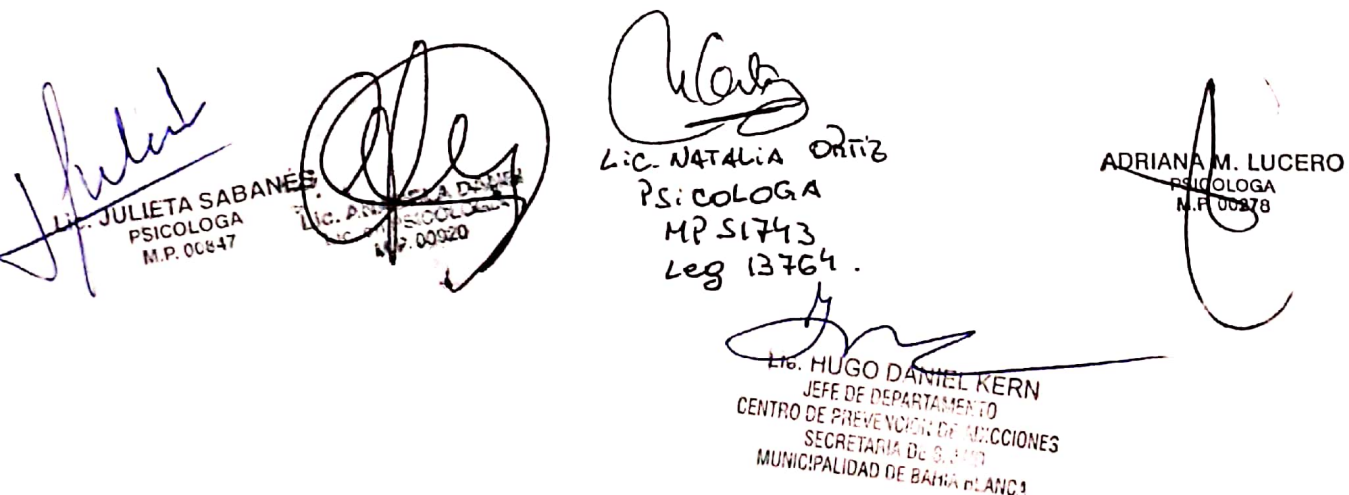 Lic. JULIETA SABANÉS
PSICOLOGA
M.P. 00847
Lic.
PSICOLOGA
M.P. 00920
Lic. NATALIA ORTIZ
PSICOLOGA
MP 51743
Leg 13764.
ADRIANA M. LUCERO
PSICOLOGA
M.P. 00278
Lic. HUGO DANIEL KERN
JEFE DE DEPARTAMENTO
CENTRO DE PREVENCION DE ADICCIONES
SECRETARIA DE SALUD
MUNICIPALIDAD DE BAHIA BLANCA